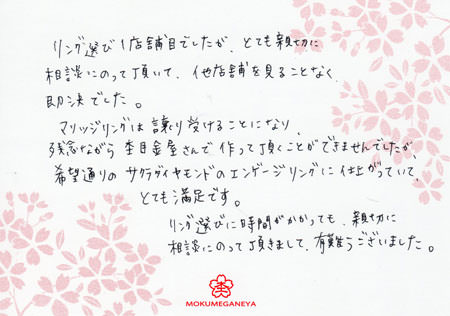 リング選び1店舗目でしたが、とても親切に
相談にのって頂いて、他店舗を見ることなく
即決でした。
マリッジリングは譲り受けることになり、
残念ながら杢目金屋さんで作って頂くことができませんでしたが
希望通りのサクラダイヤモンドのエンゲージリングに仕上がっていて、
とても満足です。
リング選びに時間がかかっても、親切に
相談にのって頂きまして、有難うございました。
杢
MOKUMEGANEYA